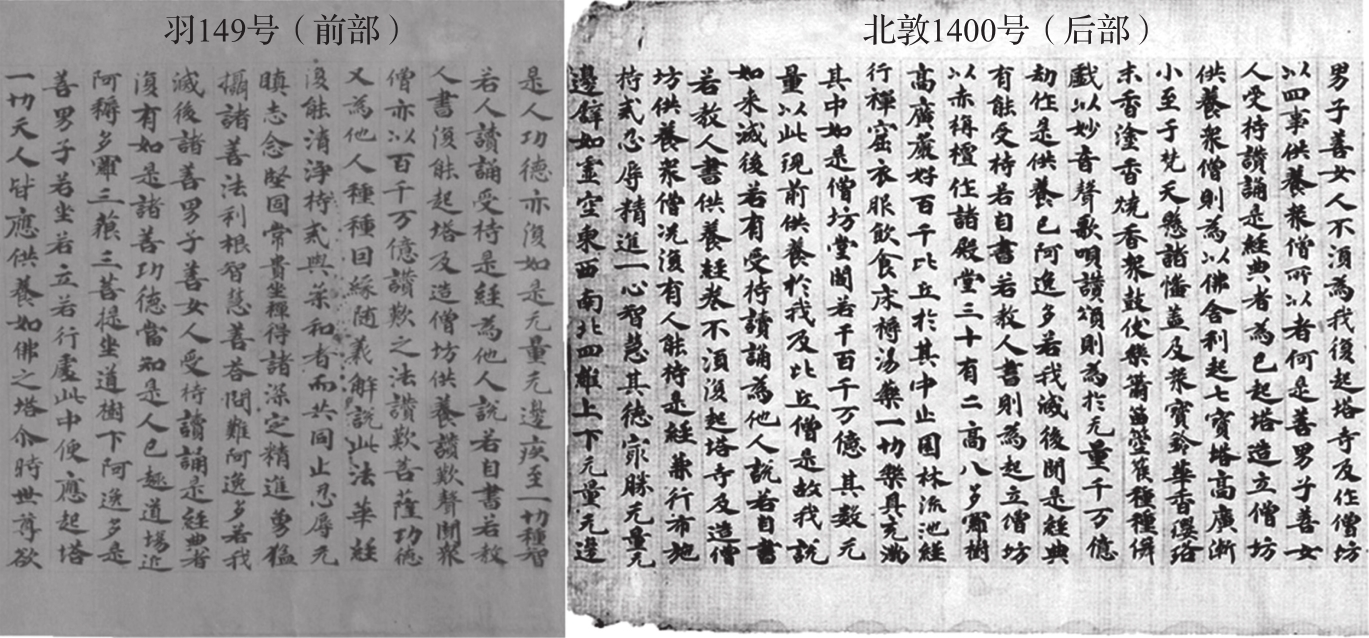 北敦1400号（后部）
男子善女人不須為我復起塔寺及作僧坊
以四事供養衆僧所以者何是善男子善女
人受持讀誦是經典者為已起塔造立僧坊
供養衆僧則為以佛舍利起七寶塔高廣漸
小至于梵天懸諸幡蓋及衆寶鈴華香瓔珞
末香塗香燒香衆鼓伎樂簫笛箜篌種種儛
戲以妙音聲歌唄讚頌則為於无量千万億
劫作是供養已阿逸多若我滅後聞是經典
有能受持若自書若教人書則為起立僧坊
以赤栴檀作諸殿堂三十有二高八多羅樹
高廣嚴好百千比丘於其中止園林流池經
行禪窟衣服飲食床褥湯藥一切樂具充滿
其中如是僧坊堂閣若干百千万億其數无
量以此現前供養於我及比丘僧是故我說
如来滅後若有受持讀誦為他人說若自書
若教人書供養經卷不須復起塔寺及造僧
坊供養衆僧况復有人能持是經兼行布施
持戒忍辱精進一心智慧其德冣勝无量无
邊譬如虛空東西南北四維上下无量无邊
羽149号（前部）
是人功德亦復如是无量无邊疾至一切種智
若人讀誦受持是經為他人說若自書若教
人書復能起塔及造僧坊供養讚歎聲聞衆
僧亦以百千万億讚歎之法讚歎菩薩功德
又為他人種種因緣随義解說此法華經
復能清淨持戒與柔和者而共同止忍辱无
瞋志念堅固常貴坐禪得諸深定精進勇猛
攝諸善法利根智慧善荅問難阿逸多若我
滅後諸善男子善女人受持讀誦是經典者
復有如是諸善功德當知是人已趣道場近
阿耨多羅三藐三菩提坐道樹下阿逸多是
善男子若坐若立若行處此中便應起塔
一切天人皆應供養如佛之塔尒時世尊欲